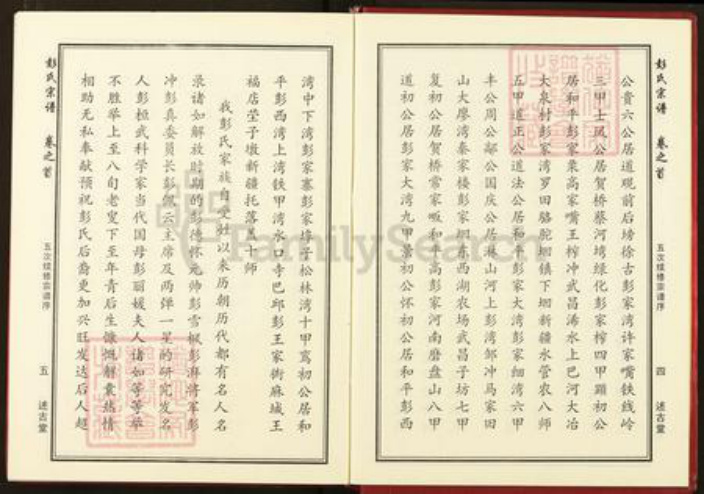 彭氏宗谱 卷之首
五次续修宗谱序
四 述古堂
公贵六公居道观前后塝徐古彭家湾许家嘴铁线岭
三甲士凤公居贺桥蔡河塆绿化彭家榨四甲顕初公
居和平彭家栗高家嘴王榨冲武昌浠水上巴河大冶
大泉村彭家湾罗田骆驼坳镇下坳新疆永管农八师
五甲道正公道法公居和平彭家大湾彭家细湾六甲
丰公周公鄰公国庆公居淋山河上彭湾邹冲马家田
山大廖湾秦家楼彭家垌东西湖农场武昌子坊七甲
复初公居贺桥常家畈和平高彭家河南磨盘山八甲
道初公居彭家大湾九甲景初公怀初公居和平彭西
湾中下湾彭家寨彭家坳子松林湾十甲寓初公居和
平彭西湾上湾铁甲湾水口寺巴邱彭王家街麻城王
福店茔子墩新疆托落盖十师
我彭氏家族自受姓以来历朝历代都有名人名
录诸如解放时期的彭德怀元帅彭雪枫彭湃将军彭
冲彭真委员长彭佩云主席及两弹一星的研究发名
人彭桓武科学家当代国母彭丽媛夫人诸如等等举
不胜举上至八旬老叟下至年青后生慷慨解囊热情
相助无私奉献预祝彭氏后裔更加兴旺发达后人超
彭氏宗谱 卷之首
五次续修宗谱序
五 述古堂
FamilySearch